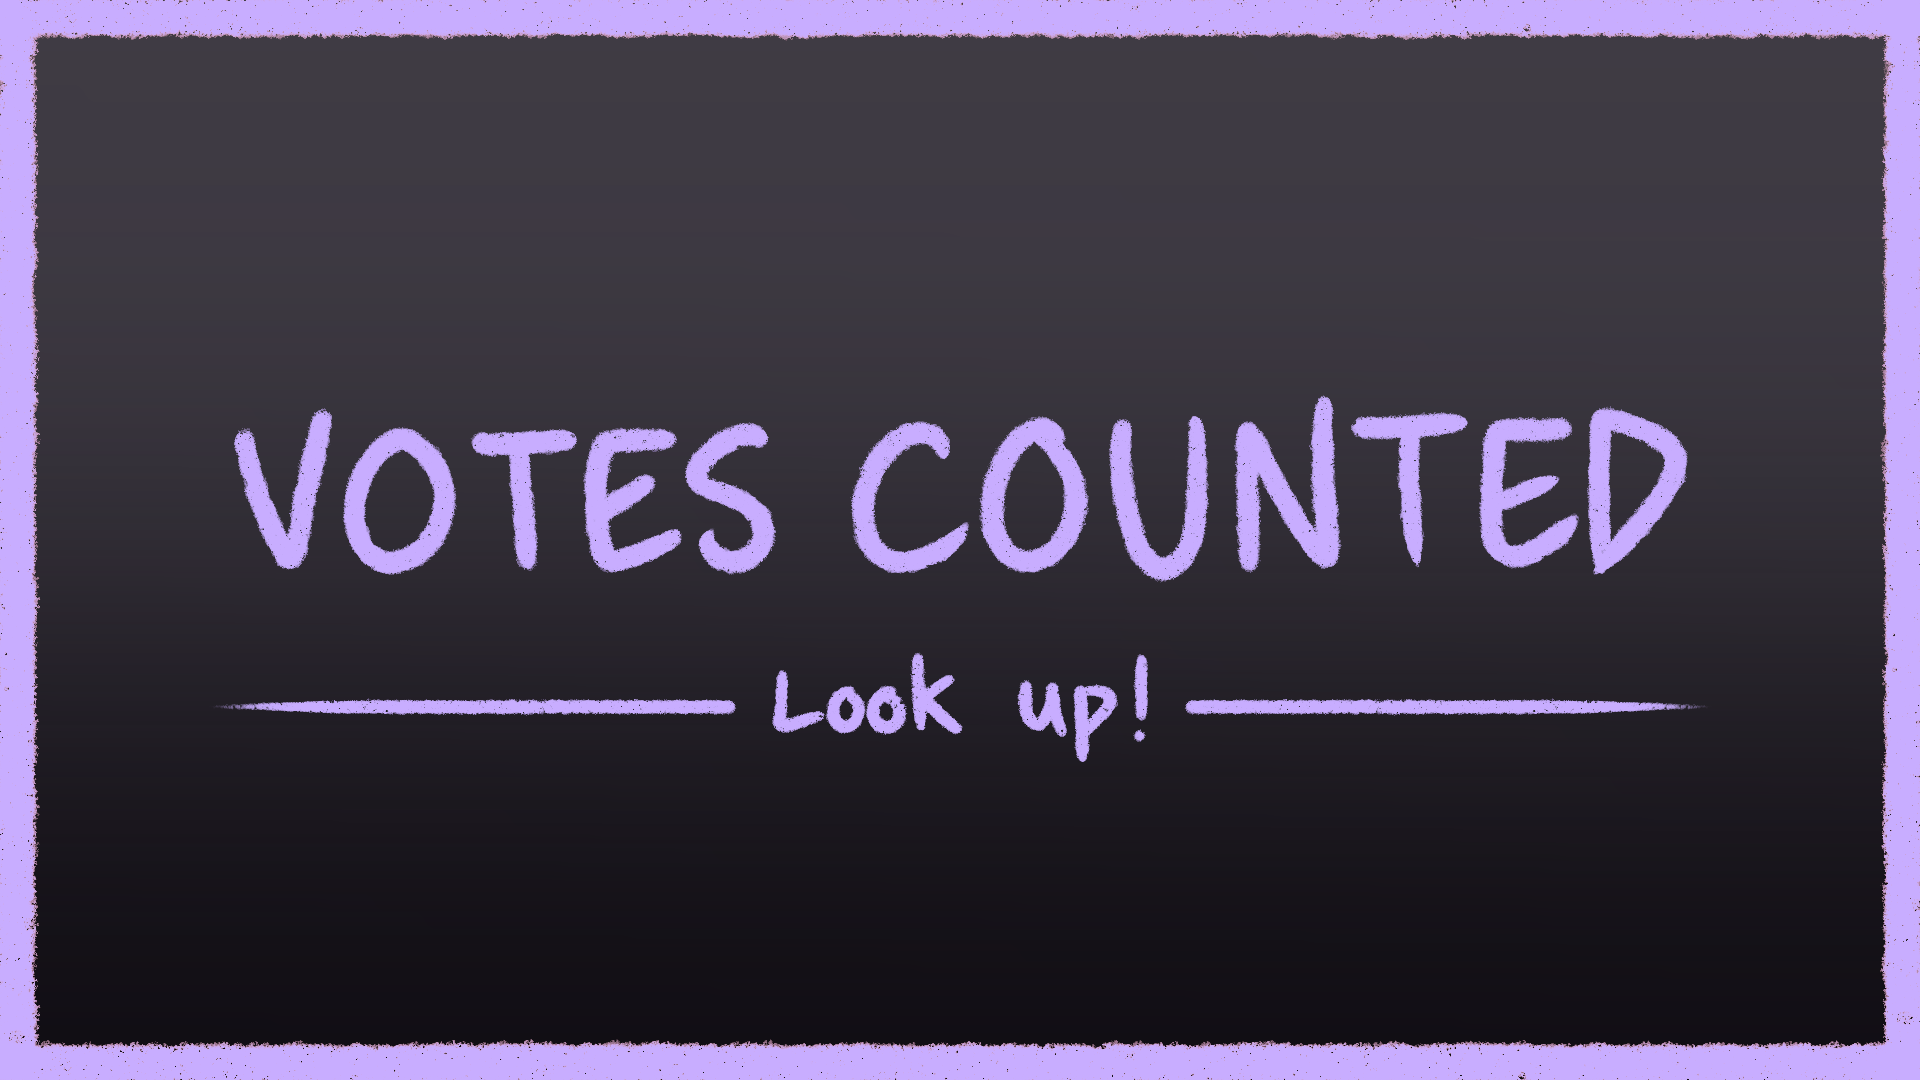 VOTES COUNTED
Look up!